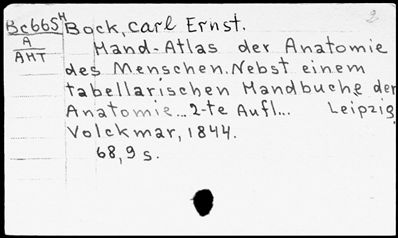 Bc665H Bock, Carl Ernst. 2
A Hand-Atlas der Anatomie
AHT des Menschen. Nebst einem
tabellarischen Handbuche der
Anatomie... 2-te Aufl... Leipzig,
Volckmar, 1844.
68,9 s.